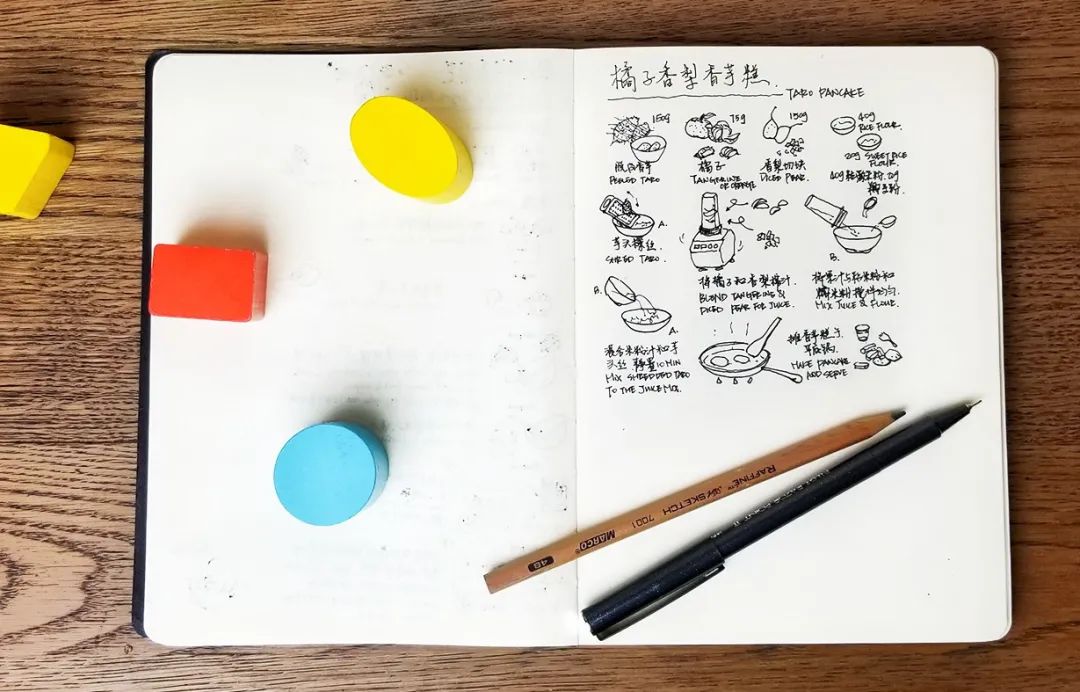 橘子香梨香芋糕.
TARO PANCAKE
150g
香芋
PEELED TARO
75g
橘子
TANGERINE
OR ORANGE
150g
香梨切块
DICED PEAR.
40g
RICE FLOUR.
20g SWEET RICE
FLOUR.
A.
芋头擦丝.
SHRED TARO.
将橘子和香梨榨汁.
BLEND TANGERINE &
DICED PEAR FOR JUICE.
B.
将果汁与粘米粉和
糯米粉搅拌均匀.
MIX JUICE & FLOUR.
B.
A.
混合米粉汁和芋
头丝 静置10MIN
MIX SHREDDED TARO
TO THE JUICE MIX.
平底锅.
MAKE PANCAKE
AND SERVE
RAFFINE™ SKETCH 7001 MARCO® 4B